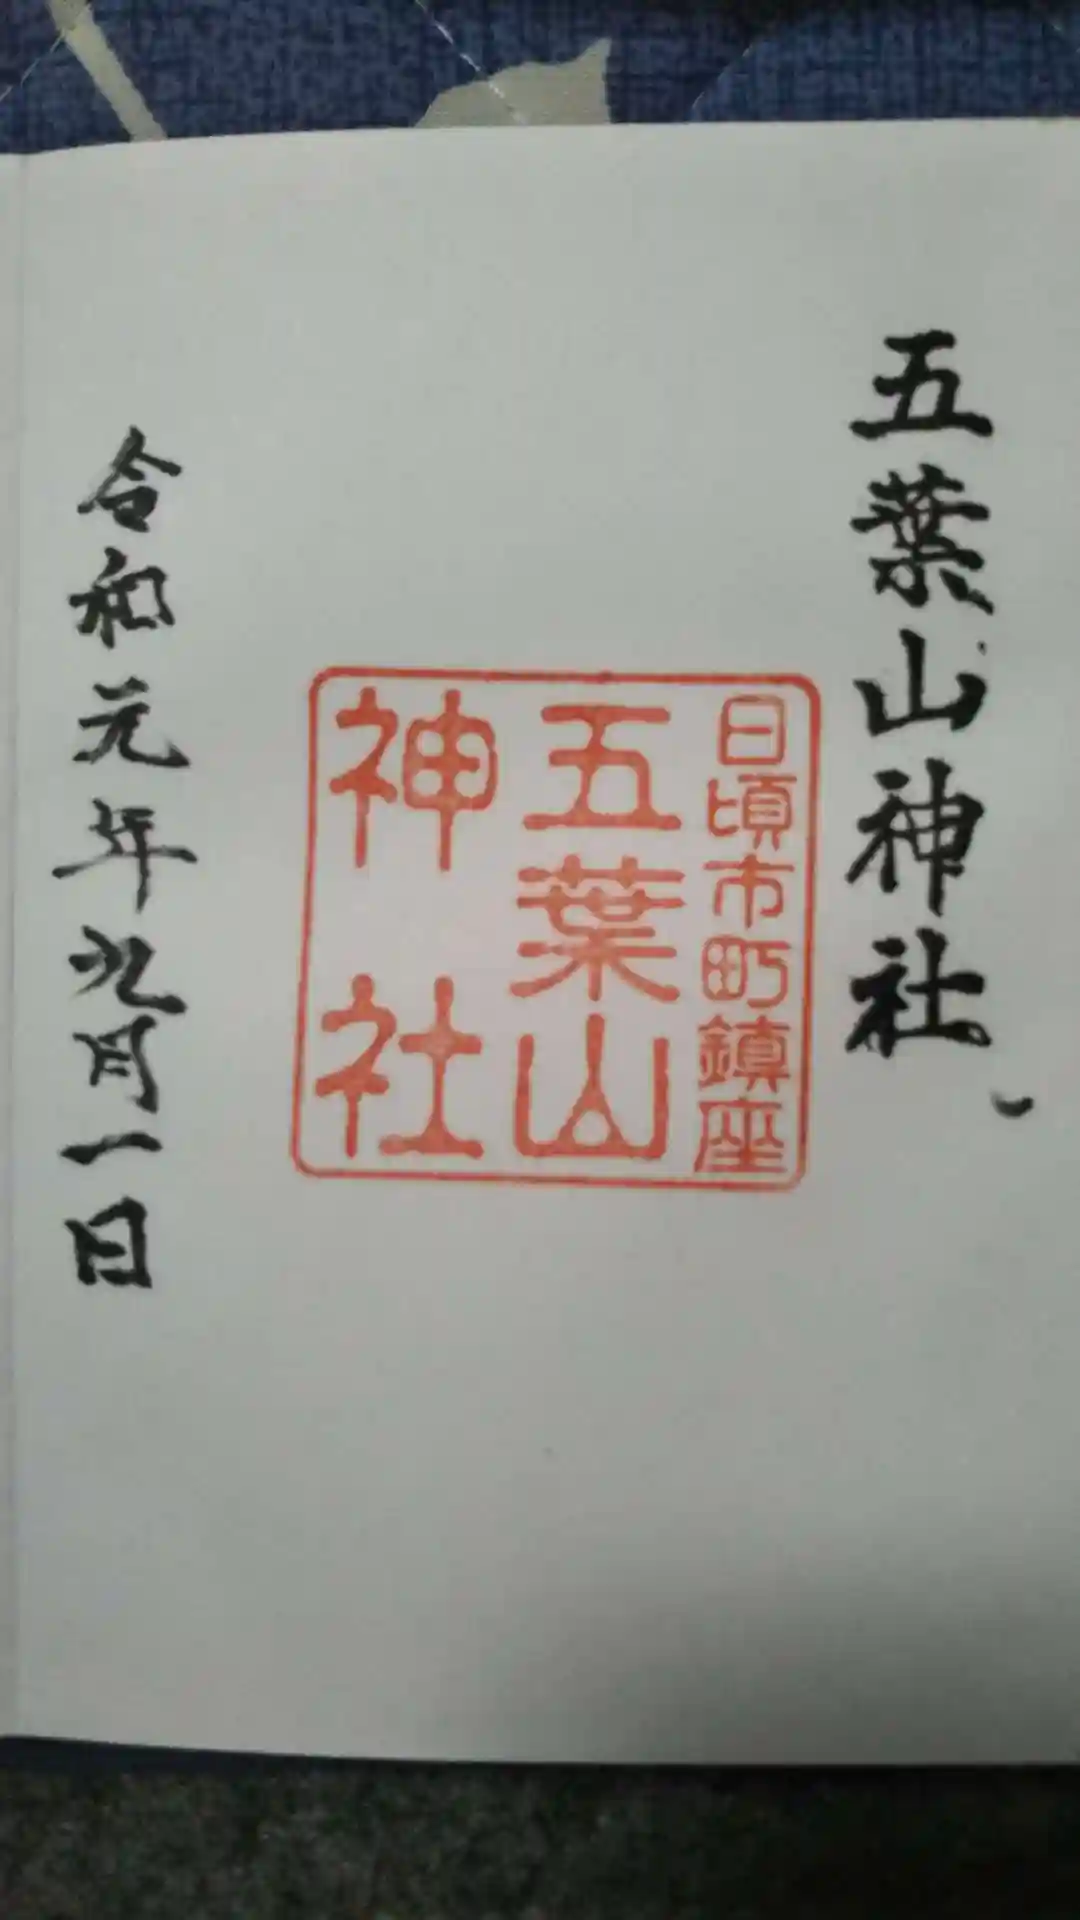 五葉山神社
日頃市町鎮座
五葉山
神社
令和元年九月一日